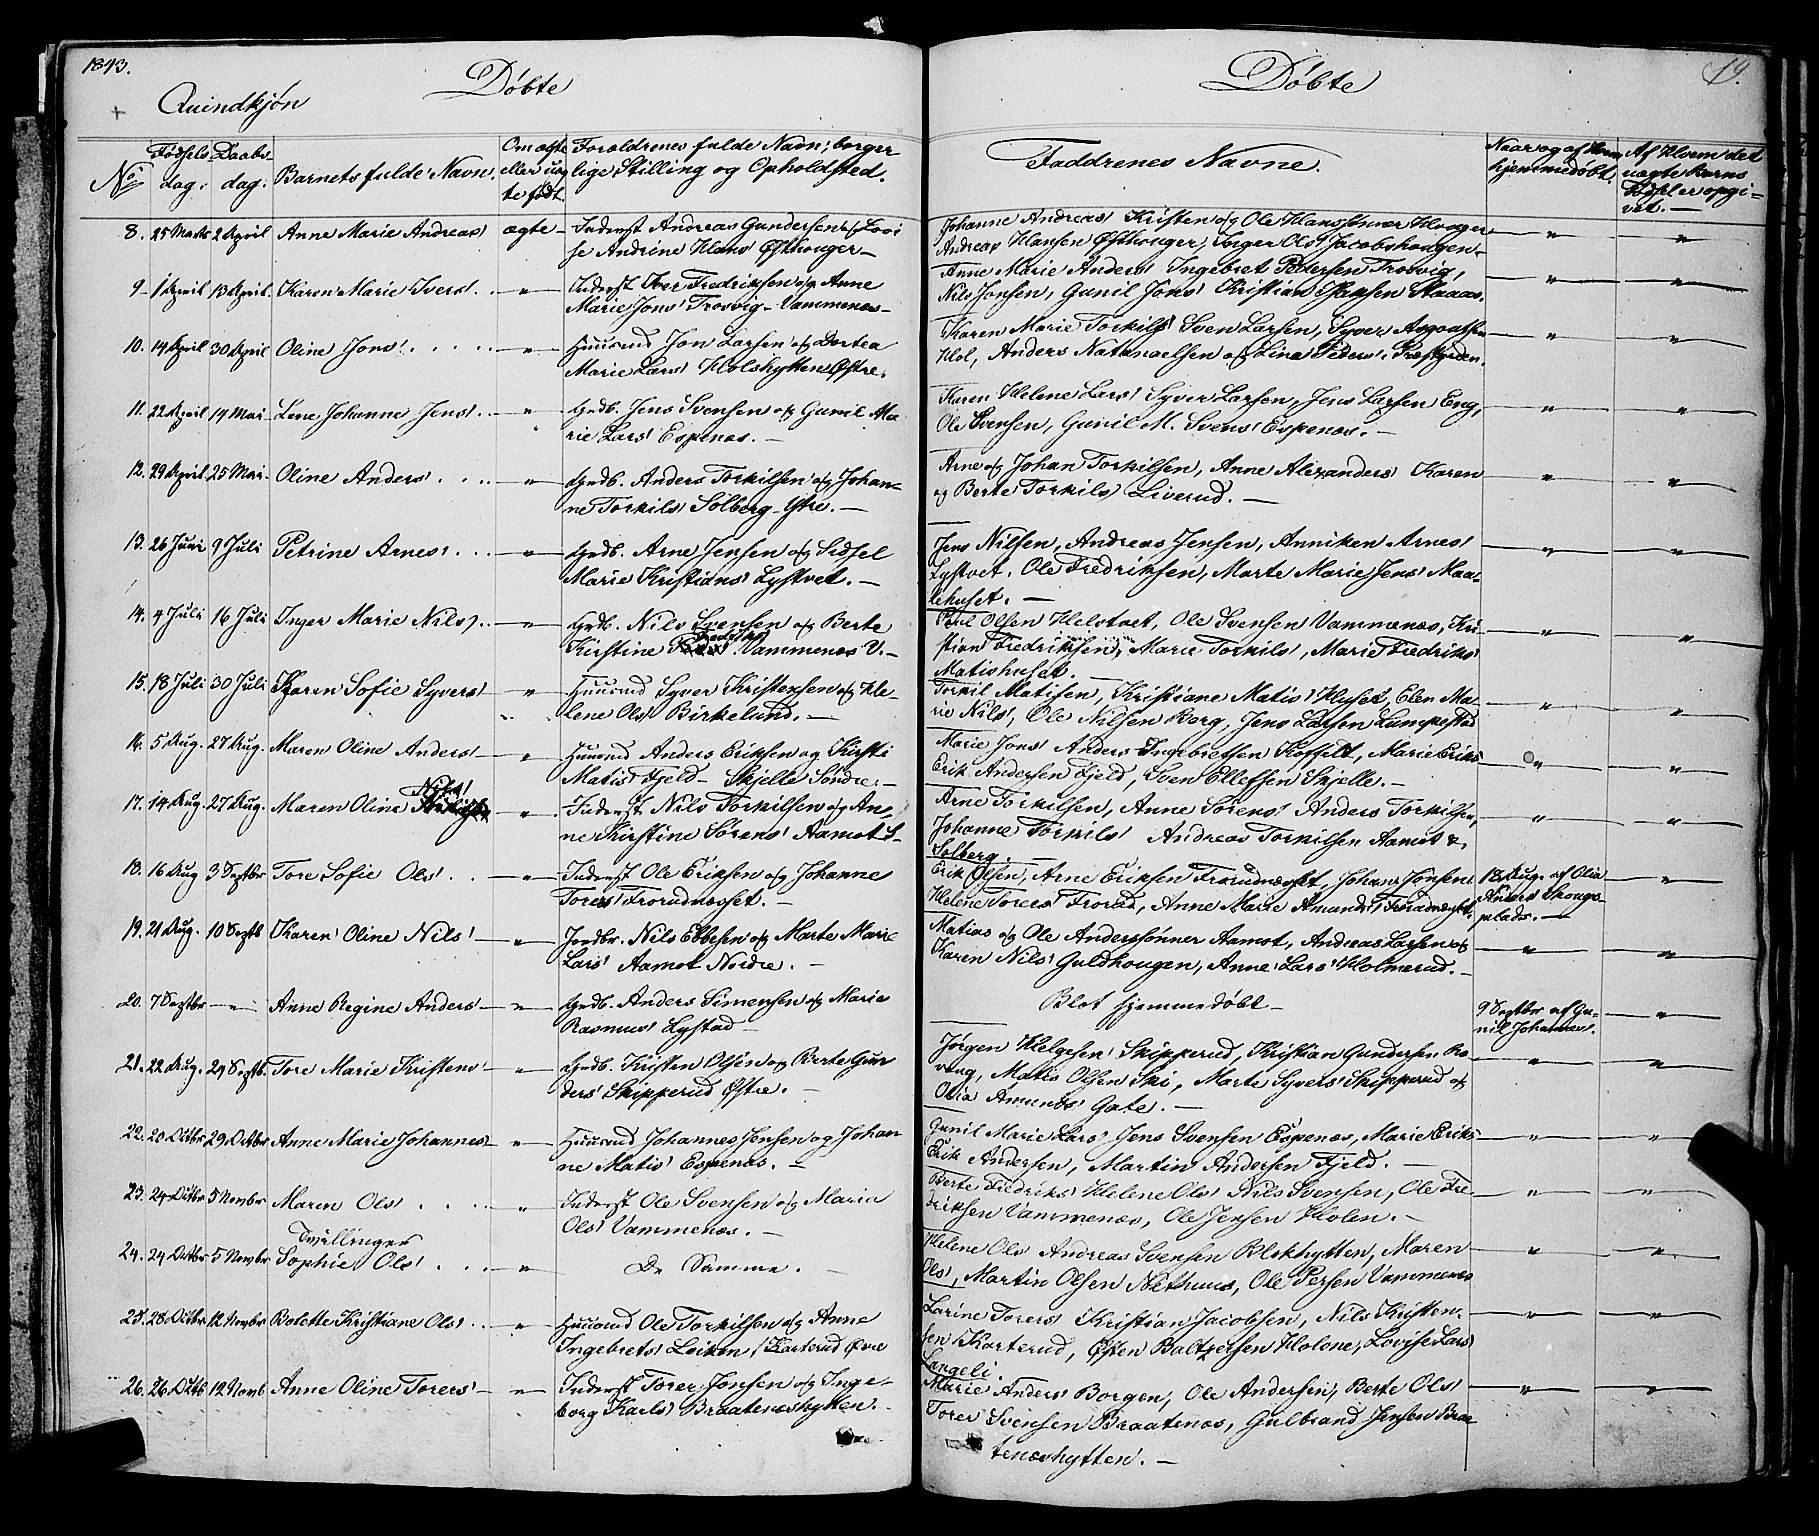 1843.
Døbte
Døbte
19.
Qvindkjøn
No
Fødsels dag.
Daabs dag.
Barnets fulde Navn.
Om ægte eller uægte født.
Forældrenes fulde Navn, borgerlige Stilling og Opholdsted.
Faddrenes Navne.
Naar og af Hvem hjemmedøbt.
Af Hvem det uægte Barns Fødsel er opgivet. —
8. 25 Marts 2 April Anne Marie Andreas' ægte Inderst Andreas Gundersen og Lovi
se Andrine Hans' Østhouger —
Johanne Andreas' Kristen og Ole Hanssønner Houger
Andreas Hansen Østhouger, Inger Ols' Jacobshougen —
9 1 April 13 April Karen Marie Ivers' „ Inderst Iver Fredriksen og Anne
Marie Jons' Trosvig - Vammenæs —
Anne Marie Anders' Ingebret Pedersen Trosvig,
Nils Jonsen, Gunil Jons' Kristian Hansen
10. 14 April 30 April Oline Jons' „ Huusmd Jon Larsen og Dortea
Marie Lars' Holshytten Østre.
Karen Marie Torkils' Sven Larsen, Syver Asgoutsen
Hol, Anders Natanaelsen og Lina Peders' Præstgrden.
11. 22 April 14 Mai Lene Johanne Jens' „ Grdb. Jens Svensen og Gunil Ma
rie Lars' Espenæs. —
Karen Helene Lars' Syver Larsen, Jens Larsen Eng,
Ole Svensen, Gunil M. Svens' Espenæs. —
12. 29 April 25 Mai Oline Anders' „ Grdb. Anders Torkilsen og Johan-
ne Torkils' Solberg - Østre. —
Arne og Johan Torkilsen, Anne Alexanders' Karen
og Berte Torkils' Liverud. —
13. 26 Juni 9 Juli Petrine Arnes' „ Grdb. Arne Jensen og Sidsel
Marie Kristians' Lystvet. —
Jens Nilsen, Andreas Jensen, Anniken Arnes'
Lystvet. Ole Fredriksen, Marte Marie Jens' Maa-
lehuset. —
14. 4 Juli 16 Juli Inger Marie Nils' „ Grdb. Nils Svensen og Berte
Kirstine Fredriks' Vammenæs V. —
Poul Olsen Helstvet, Ole Svensen Vammenæs, Kri
stian Fredriksen, Marie Torkils', Marie Fredriks'
Matishuset. —
15. 18 Juli 30 Juli Karen Sofie Syvers' „ Huusmd Syver Kristensen og He-
lene Ols' Birkelund. —
Torkil Matisen, Kristiane Matis' Huset, Elen Ma-
rie Nils', Ole Nilsen Borg, Jens Larsen
16. 5 Aug. 27 Aug. Maren Oline Anders' „ Huusmd Anders Eriksen og Kirsti
Matis' Fjeld — Skjelle Søndre. —
Marie Jons' Anders Ingebretsen Koffelt, Marie Eriks'
Erik Andersen Fjeld, Sven Ellefsen Skjelle. —
17. 14 Aug. 27 Aug. Maren Oline Nils' „ Inderst Nils Torkilsen og An-
ne Kirstine Sørens' Aamot S. —
Arne Torkilsen, Anne Sørens' Anders Torkilsen,
Johanne Torkils' Andreas Torkilsen Aamot &
Solberg. —
18. 16 Aug 3 Septbr Tore Sofie Ols' „ Inderst Ole Eriksen og Johanne
Tores' Frorudnæsset. —
Erik Olsen, Arne Eriksen Frorudnæsset, Johan Jonsen
Helene Torers' Frorud, Anne Marie Amunds' Frorudnæsset.
18 Aug. af Olia
Anders' Skougs-
pleds. —
19. 21 Aug. 10 Septb Karen Oline Nils' „ Jordbr. Nils Ebbesen og Marte Marie
Lars' Aamot Nordre. —
Matias og Ole Anderssønner Aamot, Andreas Larsen og
Karen Nils' Guldhougen, Anne Lars' Holmerud. —
20. 7 Septbr — Anne Regine Anders' „ Grdb. Anders Simensen og Maria
Rasmus' Lystad —
Blot hjemmedøbt —
9 Septbr af Gu-
nil Johannes'.
21. 22 Aug. 24 Septb. Tore Marie Kristens' „ Grdb. Kristen Olsen og Berte Gun
ders' Skipperud Østre. —
Jørgen Helgesen Skipperud, Kristian Gundersen Ra-
vaag, Matis Olsen Ski, Marte Syvers' Skipperud og
Olia Amunds' Gate. —
22. 20 Octbr 29 Octbr Anne Marie Johannes' „ Huusmd Johannes Jensen og Johan
ne Matis' Espenæs. —
Gunil Marie Lars' Jens Svensen Espenæs, Marie Eriks'
Erik Andersen, Martin Andersen Fjeld. —
23. 24 Octbr 5 Novbr Maren Ols' „ Inderst Ole Svensen og Maria
Ols' Vammenæs. —
Berte Fredriks' Helene Ols' Nils Svensen, Ole Fre-
driksen Vammenæs, Ole Jensen Holen. —
Tvillinger
24. 24 Octbr 5 Novbr Sophie Ols' „ De Samme. —
Helene Ols' Andreas Svensen Blokhytten, Maren
Ols', Martin Olsen Nøthuus, Ole Persen Vammenæs
25. 28 Octbr 12 Novbr Bolette Kristiane Ols' „ Huusmd Ole Torkilsen og Anne
Ingebrets' Løiken / Karterud Øvre
Larine Torers' Kristian Jacobsen, Nils Kristen-
sen Karterud, Østen Baltzersen Holene, Lovise Lars'
Langeli.
26. 26 Octb 12 Novb Anne Oline Torers' „ Inderst Torer Jonsen og Inge-
borg Karls' Braatenæshytten. —
Marie Anders' Borgen, Ole Andersen, Berte Ols'
Torer Svensen Braatenæs, Gulbrand Jensen Braa-
tenæshytten. —